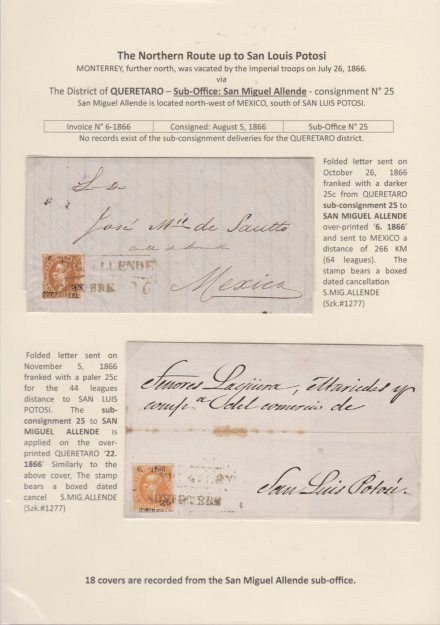 The Northern Route up to San Louis Potosi
MONTERREY, further north, was vacated by the Imperial troops on July 26, 1866.
via
The District of QUERETARO – Sub-Office: San Miguel Allende - consignment N° 25
San Miguel Allende is located north-west of MEXICO, south of SAN LUIS POTOSI.
Invoice N° 6-1866 Consigned: August 5, 1866 Sub-Office N° 25
No records exist of the sub-consignment deliveries for the QUERETARO district.
Folded letter sent on
October 26, 1866
franked with a darker
25c from QUERETARO
sub-consignment 25 to
SAN MIGUEL ALLENDE
over-printed '6. 1866'
and sent to MEXICO a
distance of 266 KM
(64 leagues). The
stamp bears a boxed
dated cancellation
S.MIG.ALLENDE
(Szk.#1277)
S. D.
José Mª de
ALLENDE
26
Mexico
Folded letter sent on
November 5, 1866
franked with a paler 25c
for the 44 leagues
distance to SAN LUIS
POTOSI. The sub-
consignment 25 to SAN
MIGUEL ALLENDE is
applied on the over-
printed QUERETARO '22.
1866' Similarly to the
above cover, The stamp
bears a boxed dated
cancel S.MIG.ALLENDE
(Szk.#1277)
Señores
comp.ª del comercio de
San Luis Potosí.
18 covers are recorded from the San Miguel Allende sub-office.